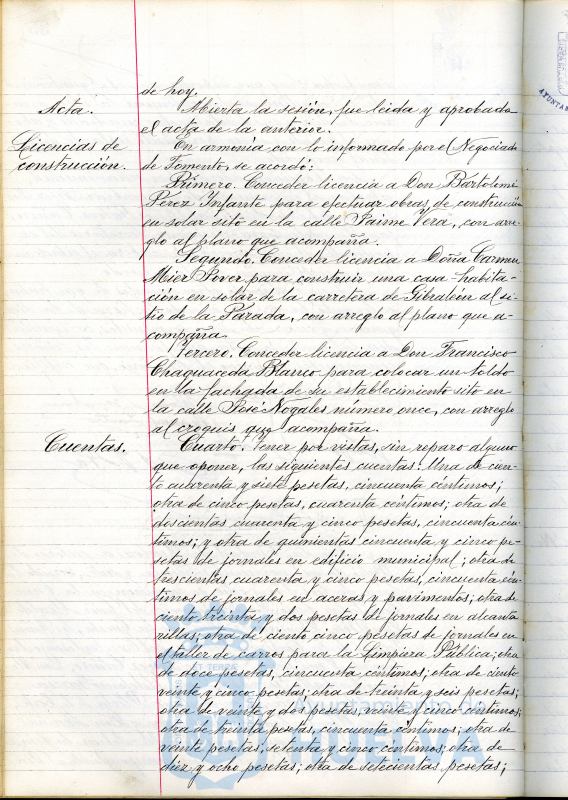 de hoy.
Acta.
Abierta la sesión, fue leida y aprobada
el acta de la anterior.
Licencias de
construcción.
En armonia con lo informado por el Negociado
de Fomento, se acordó:
Primero. Conceder licencia a Don Bartolomé
Pérez Infante para efectuar obras de construcción
en solar sito en la calle Jaime Vera, con arre-
glo al plano que acompaña.
Segundo. Conceder licencia a Doña Carmen
Mier Jover para construir una casa-habita-
ción en solar de la carretera de Gibraleón al si-
tio de la Parada, con arreglo al plano que a-
compaña.
Tercero. Conceder licencia a Don Francisco
Chaguaceda Blanco para colocar un toldo
en la fachada de su establecimiento sito en
la calle José Nogales número once, con arreglo
al croquis que acompaña.
Cuentas.
Cuarto. Tener por vistas, sin reparo alguno
que oponer, las siguientes cuentas: Una de cien-
to cuarenta y siete pesetas, cincuenta céntimos;
otra de cinco pesetas, cuarenta céntimos; otra de
doscientas cuarenta y cinco pesetas, cincuenta cén-
timos; y otra de quinientas cincuenta y cinco pe-
setas de jornales en edificio municipal; otra de
trescientas cuarenta y cinco pesetas, cincuenta cén-
timos de jornales en aceras y pavimentos; otra de
ciento treinta y dos pesetas de jornales en alcanta
rillas; otra de ciento cinco pesetas de jornales en
el taller de carros para la Limpieza Pública; otra
de doce pesetas, cincuenta céntimos; otra de ciento
veinte y cinco pesetas; otra de treinta y seis pesetas;
otra de veinte y dos pesetas, veinte y cinco céntimos;
otra de treinta pesetas, cincuenta céntimos; otra de
veinte pesetas, setenta y cinco céntimos; otra de
diez y ocho pesetas; otra de setecientas pesetas;